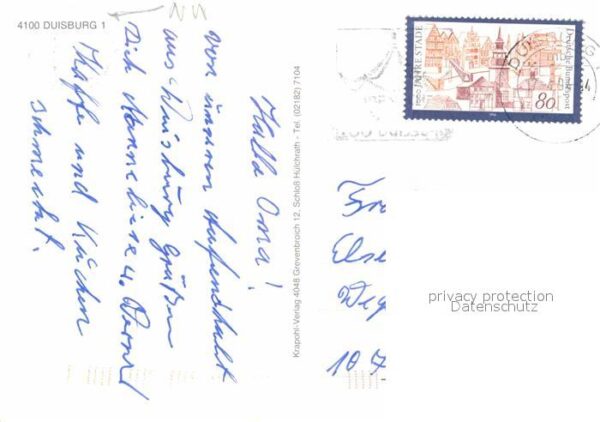 4100 DUISBURG 1
Hallo Oma!
von unserem Aufenthalt
aus Duisburg Grüßen
Dich Hanneliese u. Bernd
Kaffe und Kuchen
schmeckt.
Krapohl-Verlag 4048 Grevenbroich 12, Schloß Hülchrath - Tel. (02182) 7104
JAHRE STADE
Deutsche Bundespost
80
DUISBURG
Else
Weg
privacy protection
Datenschutz